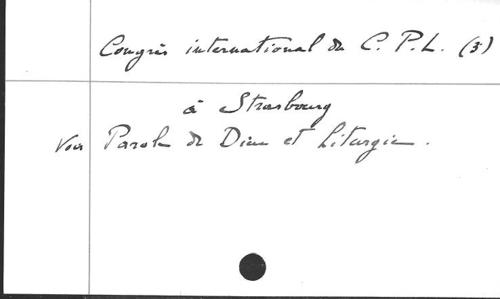 Congrès international du C. P. L. (3)
à Strasbourg
Voir Parole de Dieu et Liturgie.